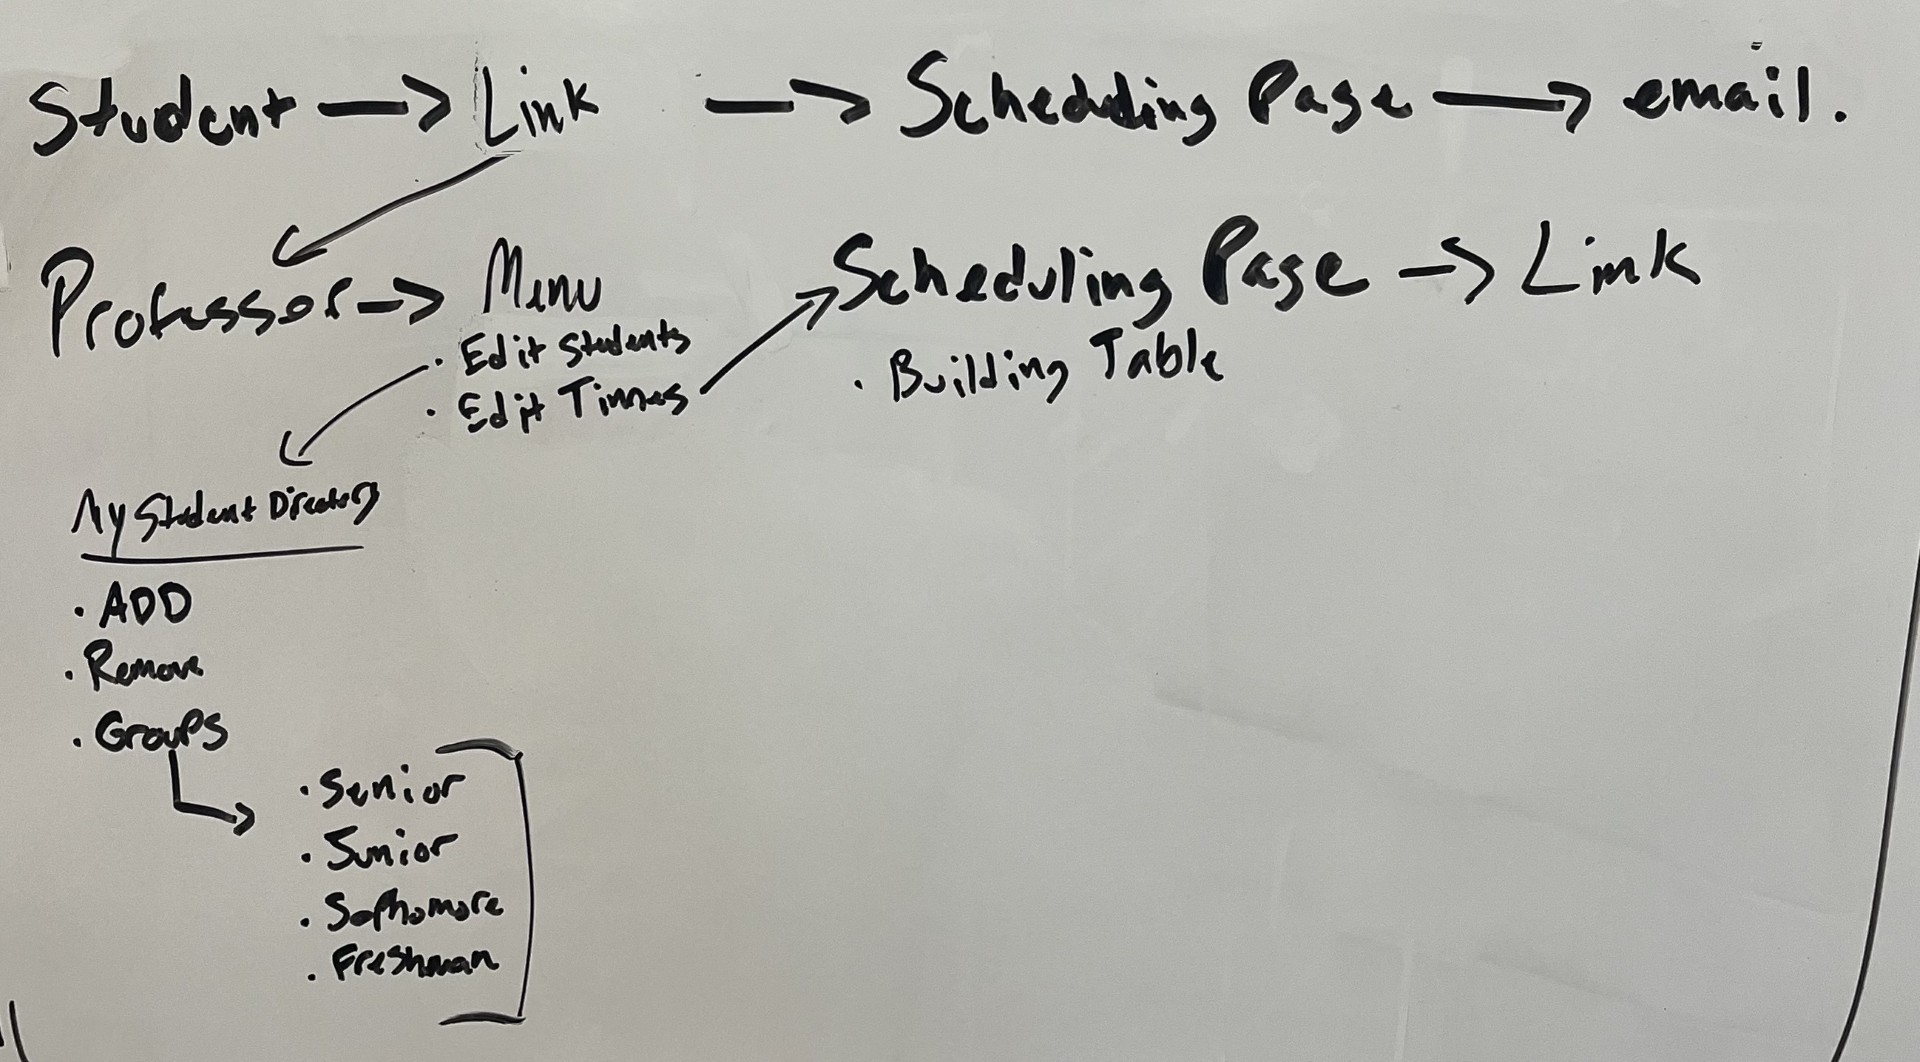 Student → Link → Scheduling Page → email.
Professor → Menu
· Edit Students
· Edit Times
Scheduling Page → Link
· Building Table
My Student Directory
· ADD
· Remove
· Groups
· Senior
· Junior
· Sophomore
· Freshman